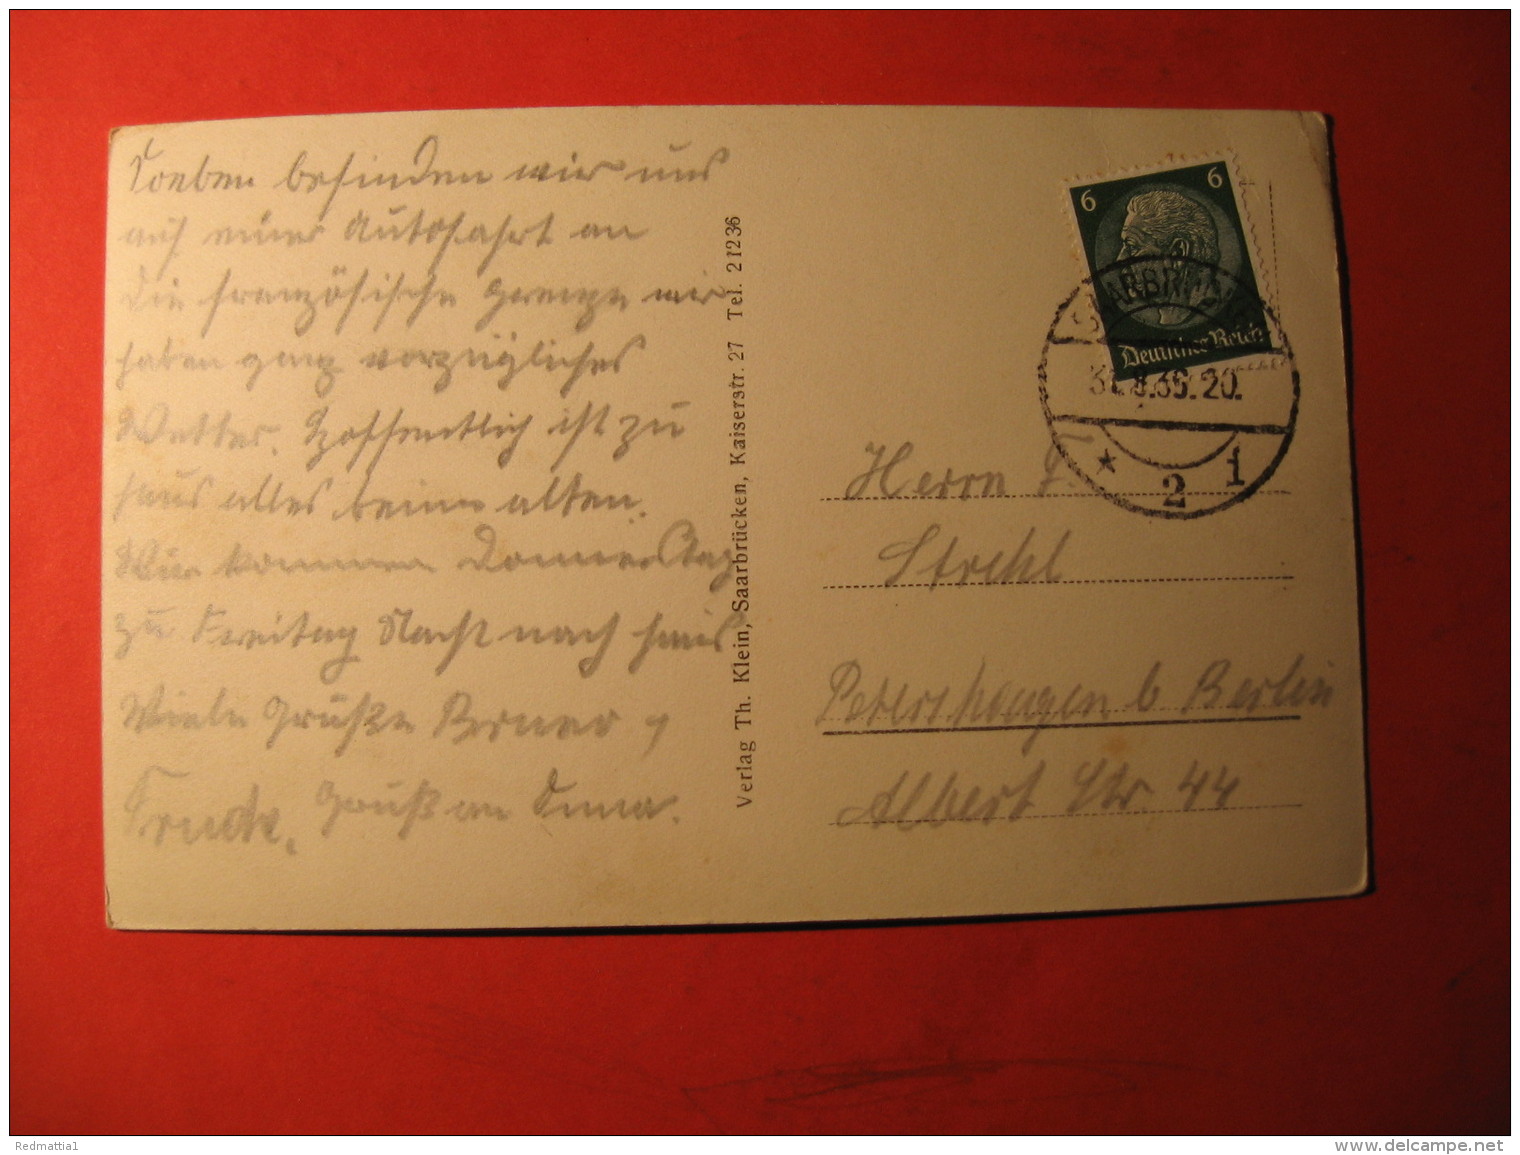 Soeben befinden wir uns
auf einer Autofahrt an
die französische Grenze wir
haben ganz vorzügliches
Wetter. Hoffentlich ist zu
haus alles beim alten.
Wir kommen Donnerstag
zu Freitag Nacht nach haus
Viele Grüße Werner
Gruß an
Verlag Th. Klein, Saarbrücken, Kaiserstr. 27 Tel. 21236
6 6
Deutsches Reich
SAARBRÜCKEN
20.
* 2 i
Herrn F.
Strehl
Petershagen b Berlin
Albert Str 44
Redmattia1
www.delcampe.net